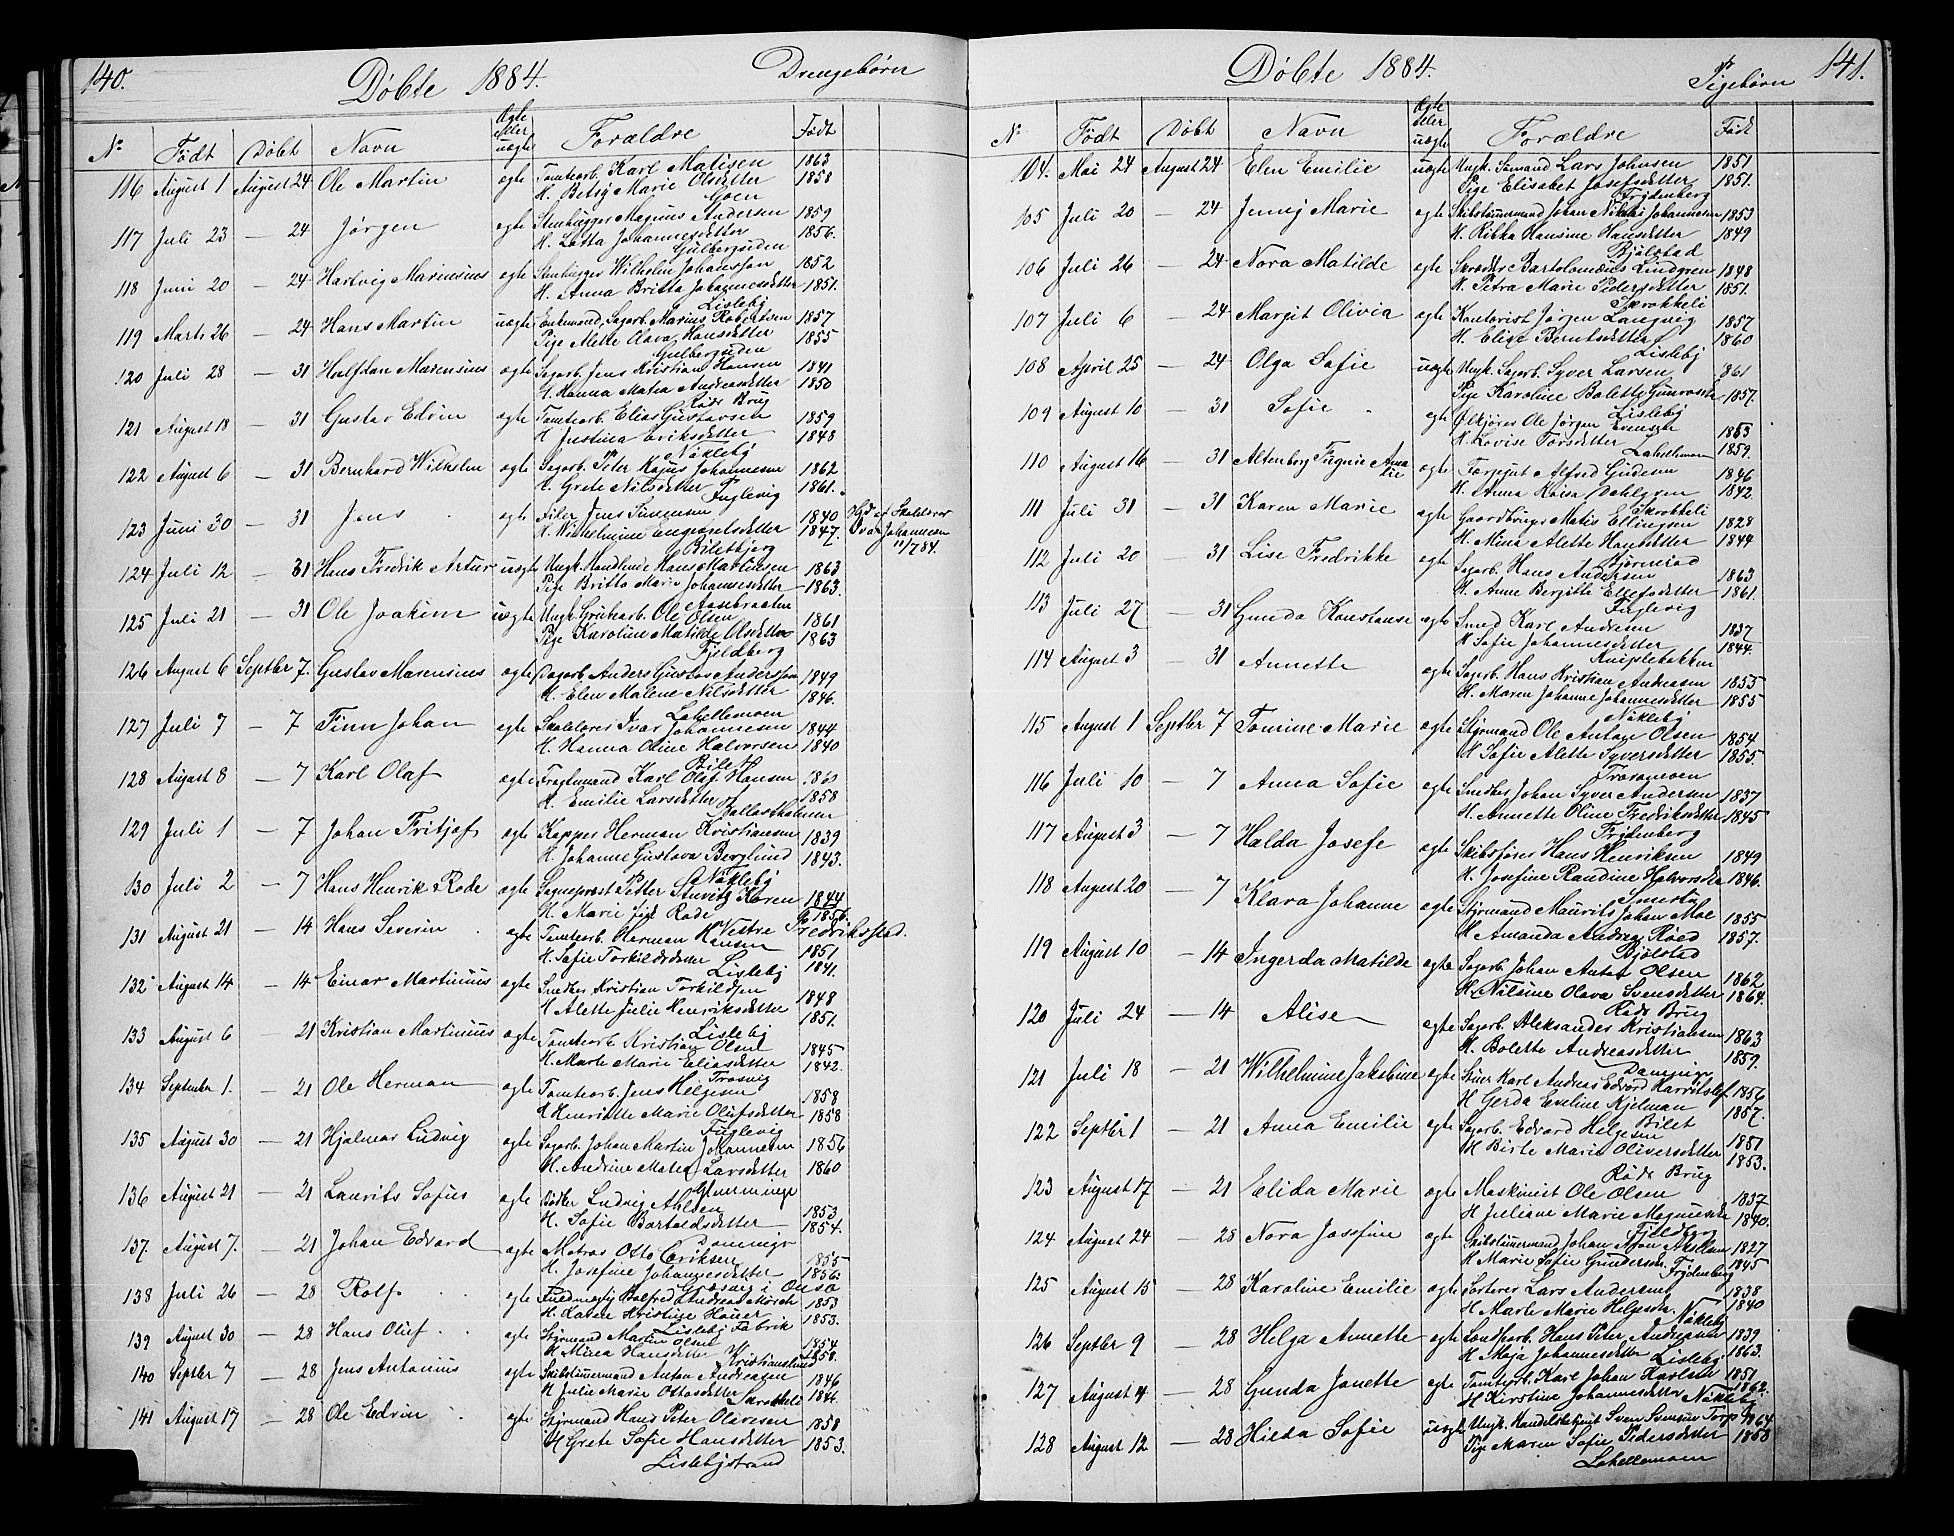 140.
Døbte 1884.
Drengebørn
No Født Døbt Navn Ægte eller uægte Forældre Født
116 August 1 August 24 Ole Martin ægte Tomtearb. Karl Matisen 1863
H. Betsy Marie Olsdetter 1858
Moen
117 Juli 23 — 24 Jørgen ægte Stenhugger Magnus Andersen 1859
H. Lotta Johannesdetter 1856.
Gulbergsiden
118 Juni 20 — 24 Hartvig Marensius ægte Stenhugger Wilhelm Johansson 1852
H. Anna Britta Johannesdetter 1851.
Lisleby
119 Marts 26 — 24 Hans Martin uægte Enkemand, Sagarb. Marius Robertsen 1857
Pige Mette Olava Hansdetter 1855
Gulbergsiden
120 Juli 28 — 31 Halfdan Marensius ægte Sagarb. Jens Kristian Hansen 1841
H. Hanna Matea Andreasdetter 1850
Røds Brug
121 August 18 — 31 Gustav Edvin ægte Tomtearb. Elias Gustavsen 1859
H. Justina Eriksdetter 1848
Nøkleby
122 August 6 — 31 Bernhard Wilhelm ægte Sagarb. Peter Kajus Johannesen 1862
H. Grete Nilsdetter 1861.
Fuglevig
123 Juni 30 — 31 Jens ægte Filer Jens Simensen 1840
H. Wilhelmine Engegelsdetter 1847.
Hjd. af Skolelærer
Ivar Johannesen
11/7 84.
124 Juli 12 — 31 Hans Fredrik Artur uægte Ungk. Handlende Hans Martinsen 1863
Pige Britta Marie Johannesdetter 1863.
Aasebraaten
125 Juli 21 — 31 Ole Joakim uægte Ungk. Grubearb. Ole Olsen 1861
Pige Karoline Matilde Olsdetter 1863
Fjeldberg
126 August 6 Septbr 7. Gustav Marensius ægte Dagarb. Anders Gustav Andersson 1849
H. Elen Malene Nilsdetter 1846.
Lahellemoen
127 Juli 7 — 7 Finn Johan ægte Skolelærer Ivar Johannesen 1844
H. Hanna Oline Halvorsen 1840
Bilet
128 August 8 — 7 Karl Olaf ægte Fragtemand Karl Olaf Hansen 1860
H. Emilie Larsdetter 1858
Ballastholmen
129 Juli 1 — 7 Johan Fritjof ægte Kapper Herman Kristiansen 1839
H. Johanne Gustava Berglund 1843.
Nøkleby
130 Juli 2 — 7 Hans Henrik Rode ægte Sogneprest Petter Stuvitz Koren 1844
H. Marie født Rode 1856.
Vestre Fredriksstad.
131 August 21 — 14 Hans Severin ægte Tomtearb. Herman Hansen 1851
H. Sofie Torkildsdetter 1841.
Lisleby
132 August 14 — 14 Einar Martinius ægte Snedker Kristian Torkildsen 1848
H. Alette Julie Henriksdetter 1851.
Lisleby
133 August 6 — 21 Kristian Martinius ægte Tomtearb. Kristian Olsen 1845
H. Marte Marie Eliasdetter 1842.
Trosvig
134 September 1. — 21 Ole Herman ægte Tomtearb. Jens Helgesen 1858
H. Henriette Marie Olufsdetter 1858
Fuglevig
135 August 30 — 21 Hjalmar Ludvig ægte Sagarb. Johan Martin Johannesen 1856
H. Andrine Matea Larsdetter 1860
Glemminge
136 August 21 — 21 Laurits Sofus ægte Bødker Ludvig Ahlsen 1853
H. Sofie Bartoldsdetter 1854.
137. August 7. — 21 Johan Edvard ægte Matros Otto Eriksen 1855
H. Josefine Johannesdetter 1856.
Græsvig i Onsø
138 Juli 26 — 28 Rolf ægte H. Karen Kristine Houer 1853
1853.
Lisleby Fabrik
139 August 30 — 28 Hans Oluf ægte Styrmand Martin Olsen 1854
H. Mina Hansdetter 1858.
Kristianslund
140 Septbr 7 — 28 Jens Antonius ægte Skibstømmermand Anton Andreasen 1846
H. Julie Marie Ottosdetter 1844.
Skrokkeli
141 August 17 — 28 Ole Edvin ægte Styrmand Hans Peter Olavesen 1858
H. Grete Sofie Hansdetter 1853.
Lislebystrand
Døbte 1884.
Pigebørn
141.
No Født Døbt Navn Ægte eller uægte Forældre Født
104. Mai 24 August 24 Elen Emilie uægte Ungk. Sømand Lars Johnsen 1851
Pige Elisabet Josefsdetter 1851.
Frydenberg
105 Juli 20 — 24 Jenny Marie ægte Skibstømmermand Johan Nikolai Johannesen 1853
H. Rikka Hansine Hansdetter 1849
Bjølstad
106 Juli 26 — 24 Nora Matilde ægte Skrædder Bartolomæus Lindgren 1848
H. Petra Marie Pedersdetter 1851.
Skrokkeli
107 Juli 6 — 24 Margit Olivia ægte Kontorist Jørgen Langvig 1857
H. Elise Berntsdetter 1860
Lisleby
108 April 25 — 24 Olga Sofie uægte Ungk. Sagarb. Syver Larsen 861
Pige Karoline Bolette Gunersdtr 1857.
Lisleby
109 August 10 — 31 Sofie ægte Ølkjører Ole Jørgen Evensen 1853
H. Lovise Torsdetter 1859.
Lahellemoen
110 August 16 — 31 Altenborg Eugenie Amalie ægte Alfred Gudesen 1846
H. Anna Kaisa Dahlgren 1842.
Skrokkeli
111 Juli 31 — 31 Karen Marie ægte Gaardbruger Matis Ellingsen 1828
H. Mina Alette Hansdetter 1844
Bjørnerød
112 Juli 20 — 31 Lise Fredrikke ægte Sagarb. Hans Andersen 1863
H. Anne Bergitte Ellefsdetter 1861.
Fuglevig
113 Juli 27 — 31 Gunda Konstanse ægte Smed Karl Andresen 1837
H. Sofie Johannesdetter 1844.
Kniplebakken
114 August 3 — 31 Annette ægte Sagarb. Hans Kristian Andreasen 1855
H. Maren Johanne Johannesdetter 1855
Nøkleby
115 August 1 Septbr 7 Tomine Marie ægte Styrmand Ole Anton Olsen 1854.
H. Sofie Alette Syversdetter 1855.
Traramoen
116 Juli 10 — 7 Anna Sofie ægte Snedker Johan Syver Andersen 1837
H. Annette Oline Fredriksdetter 1845
Frydenberg
117 August 3 — 7 Halda Josefe ægte Skibsfører Hans Henriksen 1849
H. Josefine Randine Halvorsdtr 1846.
Smertu
118 August 20 — 7 Klara Johanne ægte Styrmand Maurits Johan Moe 1855
H. Amanda Andrea Røed 1857.
Bjølstad
119 August 10 — 14 Ingerda Matilda ægte Sagarb. Johan Antof Olsen 1862
H. Nilsine Olava Svensdetter 1864.
Røds Brug
120 Juli 24 — 14 Alise ægte Sagarb. Aleksander Kristiansen 1863
H. Bolette Andreasdetter 1859.
121 Juli 18 — 21 Wilhelmine Jakobine ægte Karl Andreas Edvard 1856
H. Gerda Eveline Kjelman 1857.
Bilet
122 Septbr 1 — 21 Anna Emilie ægte Sagarb. Edvard Helgesen 1851
H. Birte Marie Oliversdetter 1853.
Røds Brug
123 August 17 — 21 Elida Marie ægte Maskinist Ole Olsen 1837
H. Juliane Marie Magnusdtr 1840.
Fjeldberg
124 August 24 — 28 Nora Josefine ægte Skibstømmermand Johan 1827
H. Marie Sofie Gundersen 1845
Frydenberg
125 August 15 — 28 Karoline Emilie ægte Sorterer Lars Andersen 1838
H. Marte Marie Helgesdtr 1840
Nøkleby
126 Septbr 9 — 28 Helga Annette ægte Hans Peter Andreassen 1839
H. Maja Johannesdetter 1863.
Lisleby
127 August 4 — 28 Gunda Janette ægte Tomtearb. Karl Johan Karlsen 1851
H. Kirstine Johannesdetter 1862.
Nøkleby
128 August 12 — 28 Hilda Sofie uægte Ungk. Handelsbetjent Sven Svensen Torp 1864
Pige Maren Sofie Pedersdetter 1858
Lahellemoen